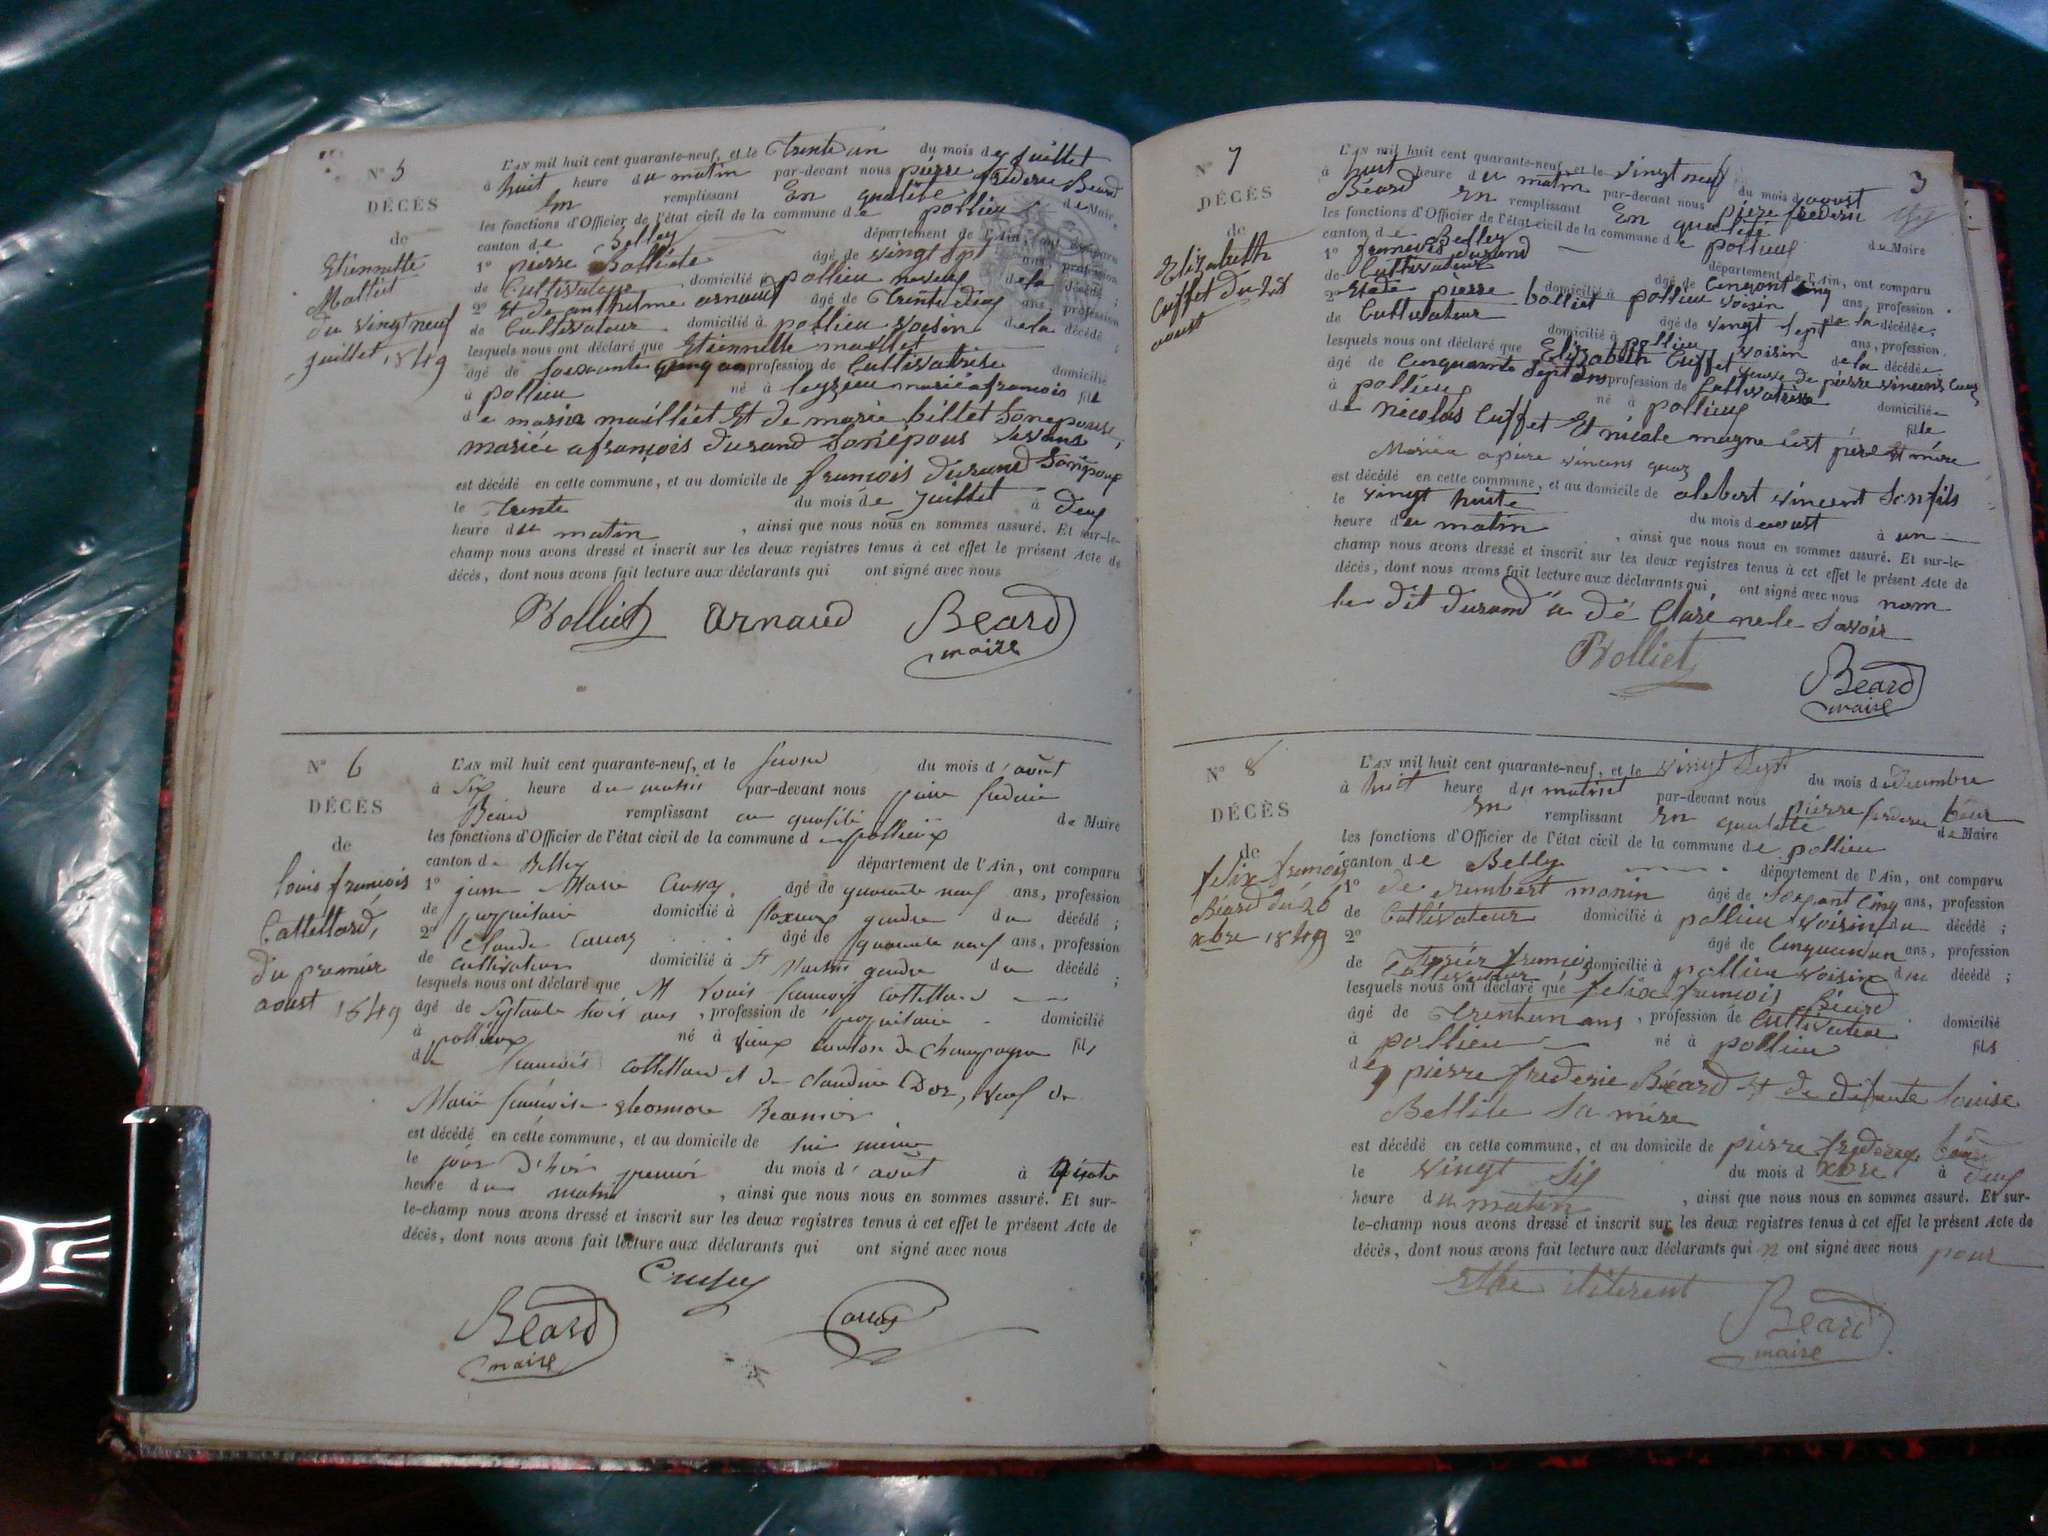 N° 5
DÉCÈS
de
Etiennette
Malliet
du vingt neuf
juillet 1849
L'AN mil huit cent quarante-neuf, et le trente un du mois de juillet
à huit heure du matin par-devant nous pierre frederic Béard
En remplissant En qualité de Maire
les fonctions d'Officier de l'état civil de la commune de pollieu
canton de Belley département de l'Ain, ont comparu
1° pierre âgé de vingt sept ans, profession
de Cultivateur domicilié à pollieu neveu de la décédé ;
2° Et de anthelme arnaud âgé de trente deux ans, profession
de Cultivateur domicilié à pollieu voisin de la décédé ;
lesquels nous ont déclaré que Etiennette
âgé de soixante profession de Cultivatrise domicilié
à pollieu né à mariée a francois fille
de et de marie billet
mariée a françois durand
est décédé en cette commune, et au domicile de francois durand
le trente du mois de juillet à deux
heure du matin , ainsi que nous nous en sommes assuré. Et sur-le-
champ nous avons dressé et inscrit sur les deux registres tenus à cet effet le présent Acte de
décès, dont nous avons fait lecture aux déclarants qui ont signé avec nous
Bolliet arnaud Beard
maire
N° 6
DÉCÈS
de
louis francois
Cattellard,
du premier
aoust 1849
L'AN mil huit cent quarante-neuf, et le du mois d'août
à six heure du matin par-devant nous pierre frederic
Béard remplissant en qualité de Maire
les fonctions d'Officier de l'état civil de la commune de pollieux
canton de Belley département de l'Ain, ont comparu
1° Marie âgé de quarante neuf ans, profession
de propriétaire domicilié à gendre du décédé ;
2° Claude âgé de quarante neuf ans, profession
de cultivateur domicilié à St Martin gendre du décédé ;
lesquels nous ont déclaré que Mr Louis francois Cattellard
âgé de Septante trois ans , profession de propriétaire domicilié
à pollieux né à vieux canton de Champagne fils
de francois Cattellard et de claudine veuf de
Marie françoise
est décédé en cette commune, et au domicile de lui même
le jour d'hier premier du mois d'août à
heure du matin , ainsi que nous nous en sommes assuré. Et sur-
le-champ nous avons dressé et inscrit sur les deux registres tenus à cet effet le présent Acte de
décès, dont nous avons fait lecture aux déclarants qui ont signé avec nous
Beard
maire
3
N° 7
DÉCÈS
de
Elizabeth
Cuffet du 28
aoust
L'AN mil huit cent quarante-neuf, et le vingt neuf du mois d'aoust
à huit heure du matin par-devant nous pierre frederic
Béard En remplissant En qualité de Maire
les fonctions d'Officier de l'état civil de la commune de pollieux
canton de Belley département de l'Ain, ont comparu
1° francois durand âgé de ans, profession
de Cultivateur domicilié à pollieu voisin de la décédée ;
2° Et de pierre bolliet âgé de vingt sept ans, profession
de Cultivateur domicilié à pollieu voisin de la décédée
lesquels nous ont déclaré que Elizabeth Cuffet veuve de pierre
âgé de cinquante sept ans profession de Cultivatrise domiciliée
à pollieu né à pollieux fille
de nicolas Cuffet Et nicole père Et mère
Mariée a
est décédé en cette commune, et au domicile de vincent son fils
le vingt huite du mois d'aoust à un
heure du matin , ainsi que nous nous en sommes assuré. Et sur-le-
champ nous avons dressé et inscrit sur les deux registres tenus à cet effet le présent Acte de
décès, dont nous avons fait lecture aux déclarants qui ont signé avec nous nom
le dit durand a dé claré ne le savoir
Bolliet Beard
maire
N° 8
DÉCÈS
de
felix francois
Béard du 26
xbre 1849
L'AN mil huit cent quarante-neuf, et le vingt sept du mois de décembre
à huit heure du par-devant nous pierre
En remplissant En de Maire
les fonctions d'Officier de l'état civil de la commune de pollieu
canton de Belley département de l'Ain, ont comparu
1° de rembert monin âgé de soixant cinq ans, profession
de Cultivateur domicilié à pollieu voisin du décédé ;
2° francois âgé de ans, profession
de Cultivateur domicilié à pollieu voisin du décédé ;
lesquels nous ont déclaré que felix francois Béard
âgé de trentun ans , profession de Cultivateur domicilié
à pollieu né à pollieu fils
de pierre frederic Béard Et de défunte louise
sa mère
est décédé en cette commune, et au domicile de pierre
le vingt six du mois d xbre à deux
heure du matin , ainsi que nous nous en sommes assuré. Et sur-
le-champ nous avons dressé et inscrit sur les deux registres tenus à cet effet le présent Acte de
décès, dont nous avons fait lecture aux déclarants qui n ont signé avec nous pour
Beard
maire